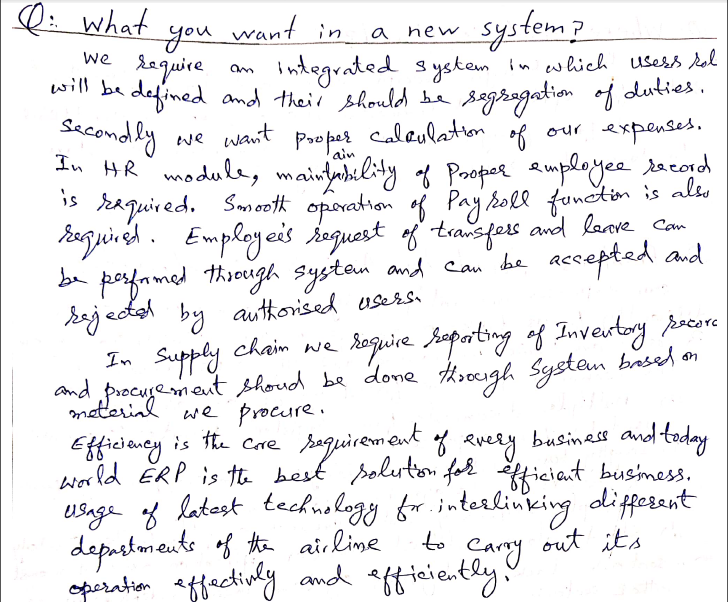 Q: What you want in a new system?
We require an integrated system in which users rol
will be defined and their should be segregation of duties.
Secondly we want proper calculation of our expenses.
In HR module, maintainability of Proper employee record
is required. Smooth operation of Pay roll function is also
required. Employees request of transfers and leave can
be performed through system and can be accepted and
rejected by authorised users.
In Supply chain we require reporting of Inventory recorc
and procurement shoud be done through System based on
meterial we procure.
Efficiency is the core requirement of every business and today
world ERP is the best solution for efficient business.
Usage of latest technology for interlinking different
departments of the airline to carry out its
operation effectively and efficiently.